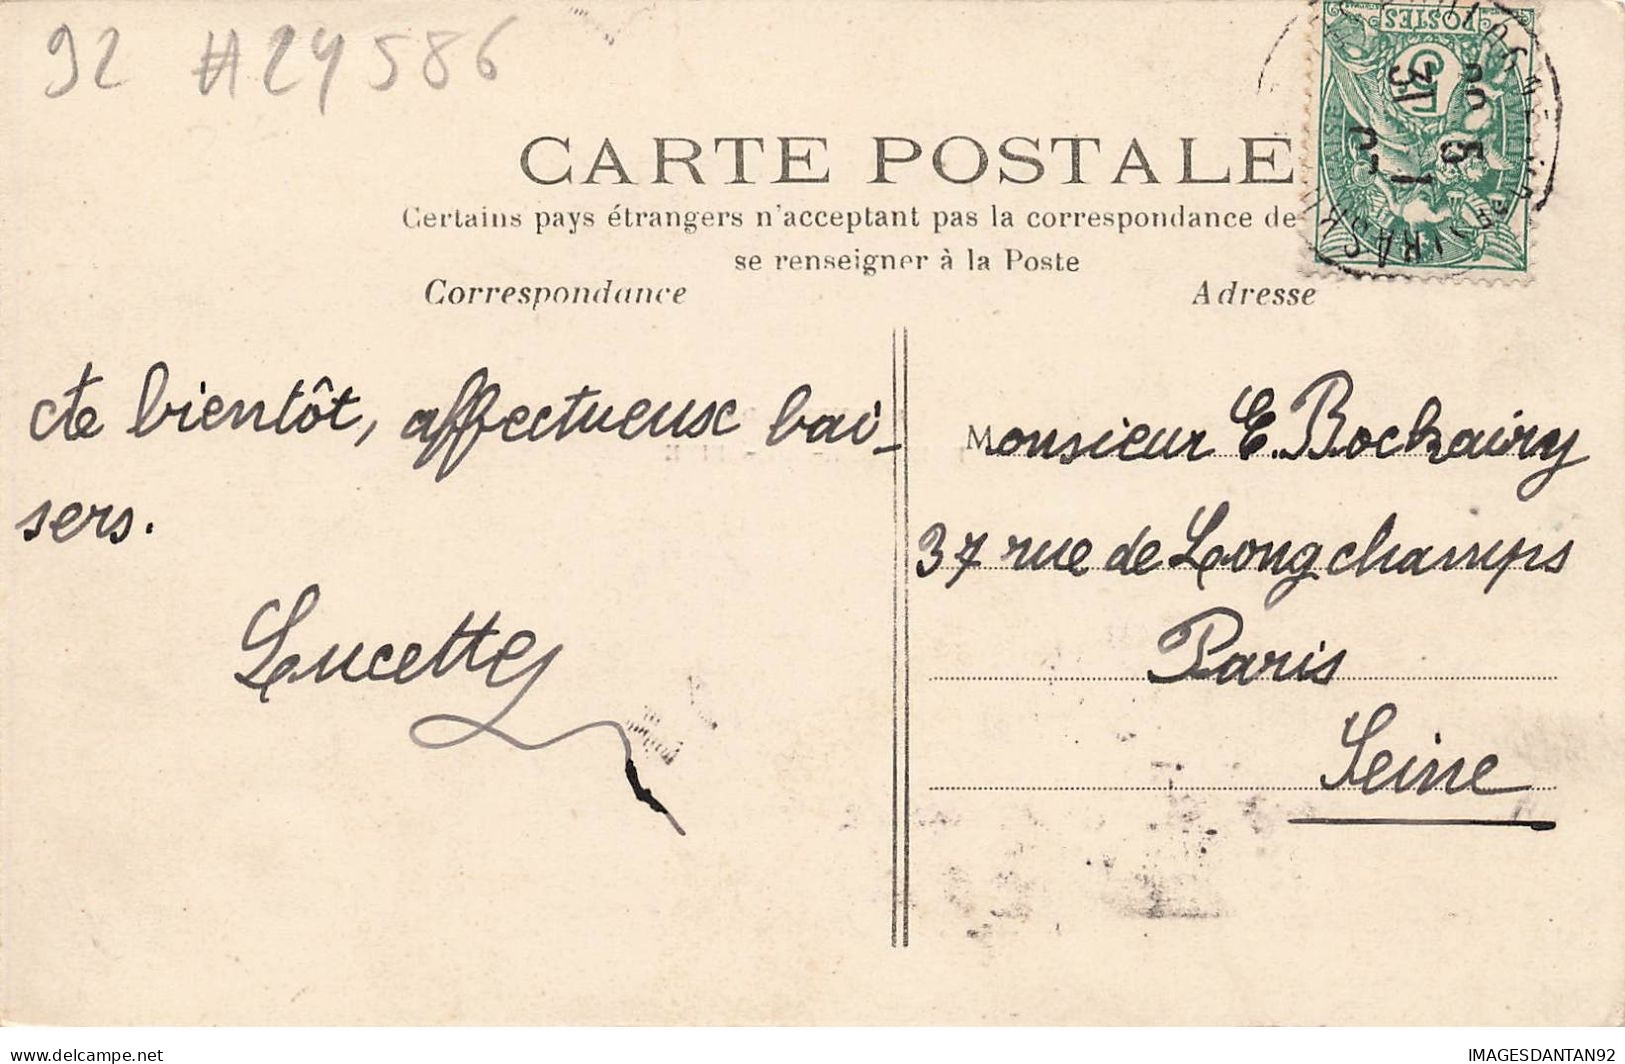 92 #24586
POSTES
CARTE POSTALE
Certains pays étrangers n'acceptant pas la correspondance de
se renseigner à la Poste
Correspondance
Adresse
A bientôt, affectueux bai-
sers.
Lucette
Monsieur E. Bockairy
37 rue de Longchamps
Paris
Seine
delcampe.net
IMAGESDANTAN92